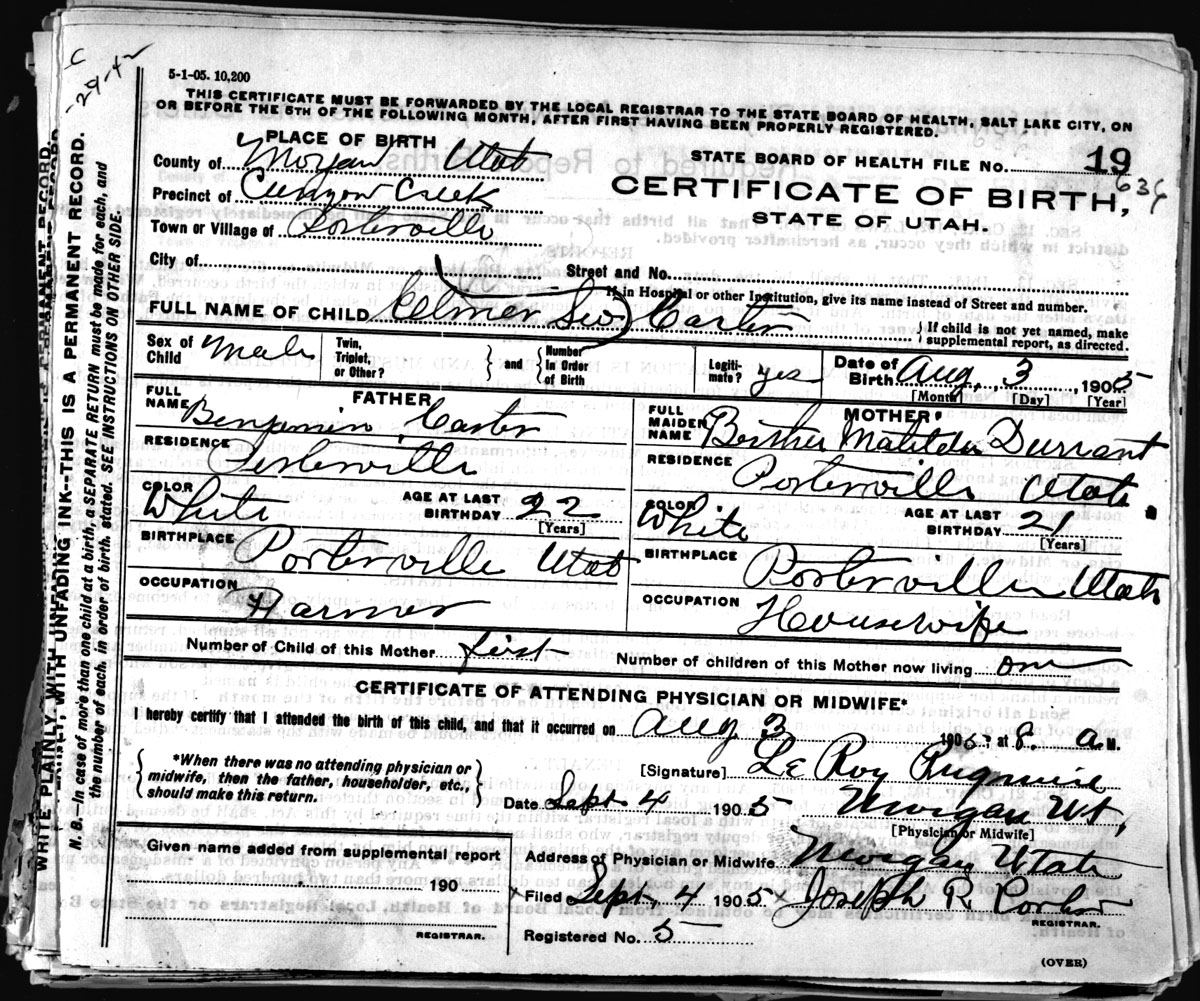 5-1-05. 10,200
THIS CERTIFICATE MUST BE FORWARDED BY THE LOCAL REGISTRAR TO THE STATE BOARD OF HEALTH, SALT LAKE CITY, ON
OR BEFORE THE 5TH OF THE FOLLOWING MONTH, AFTER FIRST HAVING BEEN PROPERLY REGISTERED.
PLACE OF BIRTH
County of Morgan Utah
STATE BOARD OF HEALTH FILE No. 19
636
Precinct of Cunyon Creek
CERTIFICATE OF BIRTH,
Town or Village of Porterville
STATE OF UTAH.
City of Street and No.
If in Hospital or other Institution, give its name instead of Street and number.
FULL NAME OF CHILD Elmer Carter
{ If child is not yet named, make supplemental report, as directed.
Sex of Child Male
Twin, Triplet, or Other? } and { Number in Order of Birth
Legiti-mate? yes
Date of Birth Aug, 3, 1905
[Month] [Day] [Year]
FATHER
FULL NAME Benjamin Carter
RESIDENCE Porterville
COLOR White
AGE AT LAST BIRTHDAY 22
[Years]
BIRTHPLACE Porterville Utah
OCCUPATION Farmer
MOTHER
FULL MAIDEN NAME Bertha Matilda Durrant
RESIDENCE Porterville Utah.
COLOR White
AGE AT LAST BIRTHDAY 21
[Years]
BIRTHPLACE Porterville Utah
OCCUPATION Housewife
Number of Child of this Mother first
Number of children of this Mother now living one
CERTIFICATE OF ATTENDING PHYSICIAN OR MIDWIFE*
I hereby certify that I attended the birth of this child, and that it occurred on Aug 3 1905; at 8. a. M.
{ *When there was no attending physician or
midwife, then the father, householder, etc.,
should make this return. }
[Signature] Le Roy
Date Sept 4 1905 Morgan Ut.
[Physician or Midwife]
Given name added from supplemental report
190
REGISTRAR.
Address of Physician or Midwife Morgan Utah
Filed Sept. 4 1905 Joseph R
REGISTRAR.
Registered No. 5
(OVER)
WRITE PLAINLY, WITH UNFADING INK--THIS IS A PERMANENT RECORD.
N. B.—In case of more than one child at a birth, a SEPARATE RETURN must be made for each, and
the number of each, in order of birth, stated. SEE INSTRUCTIONS ON OTHER SIDE.